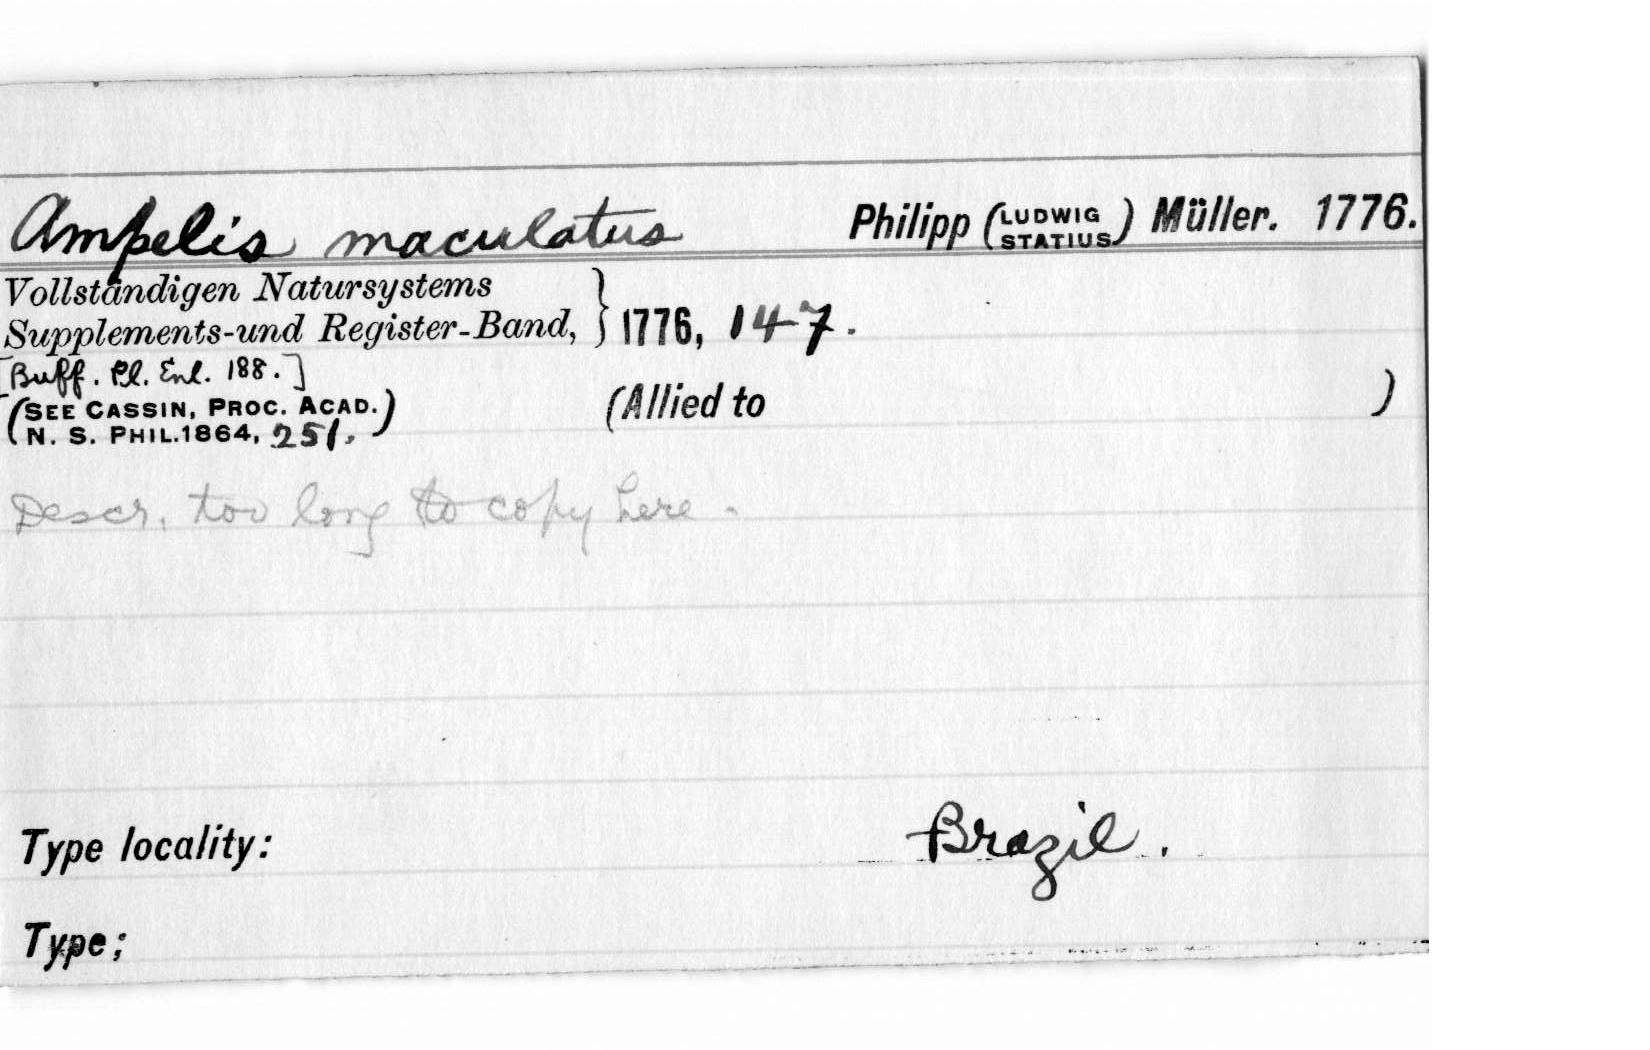 Ampelis maculatus Philipp (LUDWIG STATIUS) Müller. 1776.
Vollständigen Natursystems
Supplements-und Register-Band, } 1776, 147.
[Buff. Pl. Enl. 188.]
(SEE CASSIN, PROC. ACAD. (Allied to )
N. S. PHIL.1864, 251.)
Descr. too long to copy here.
Type locality: Brazil.
Type;